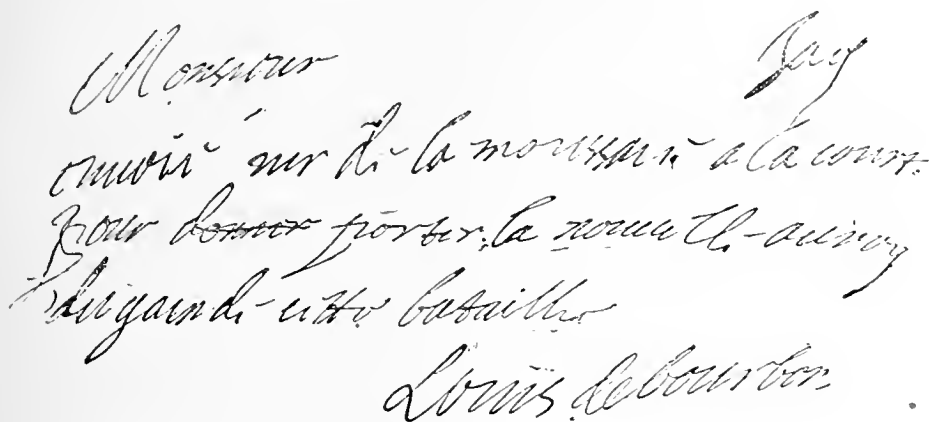 Monsieur Jay
enuoié mr de la moussaie a la court
pour ~~donner~~ porter la nouuelle au roy
du gain de cette bataille
Louis de bourbon